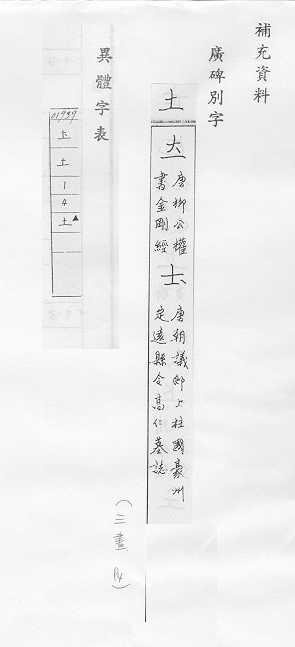 補充資料
廣碑別字
土
唐柳公權
書金剛經
唐朝議郎上柱國豪州
定遠縣令高仁墓誌
異體字表
土
1
4
土▲
(三畫